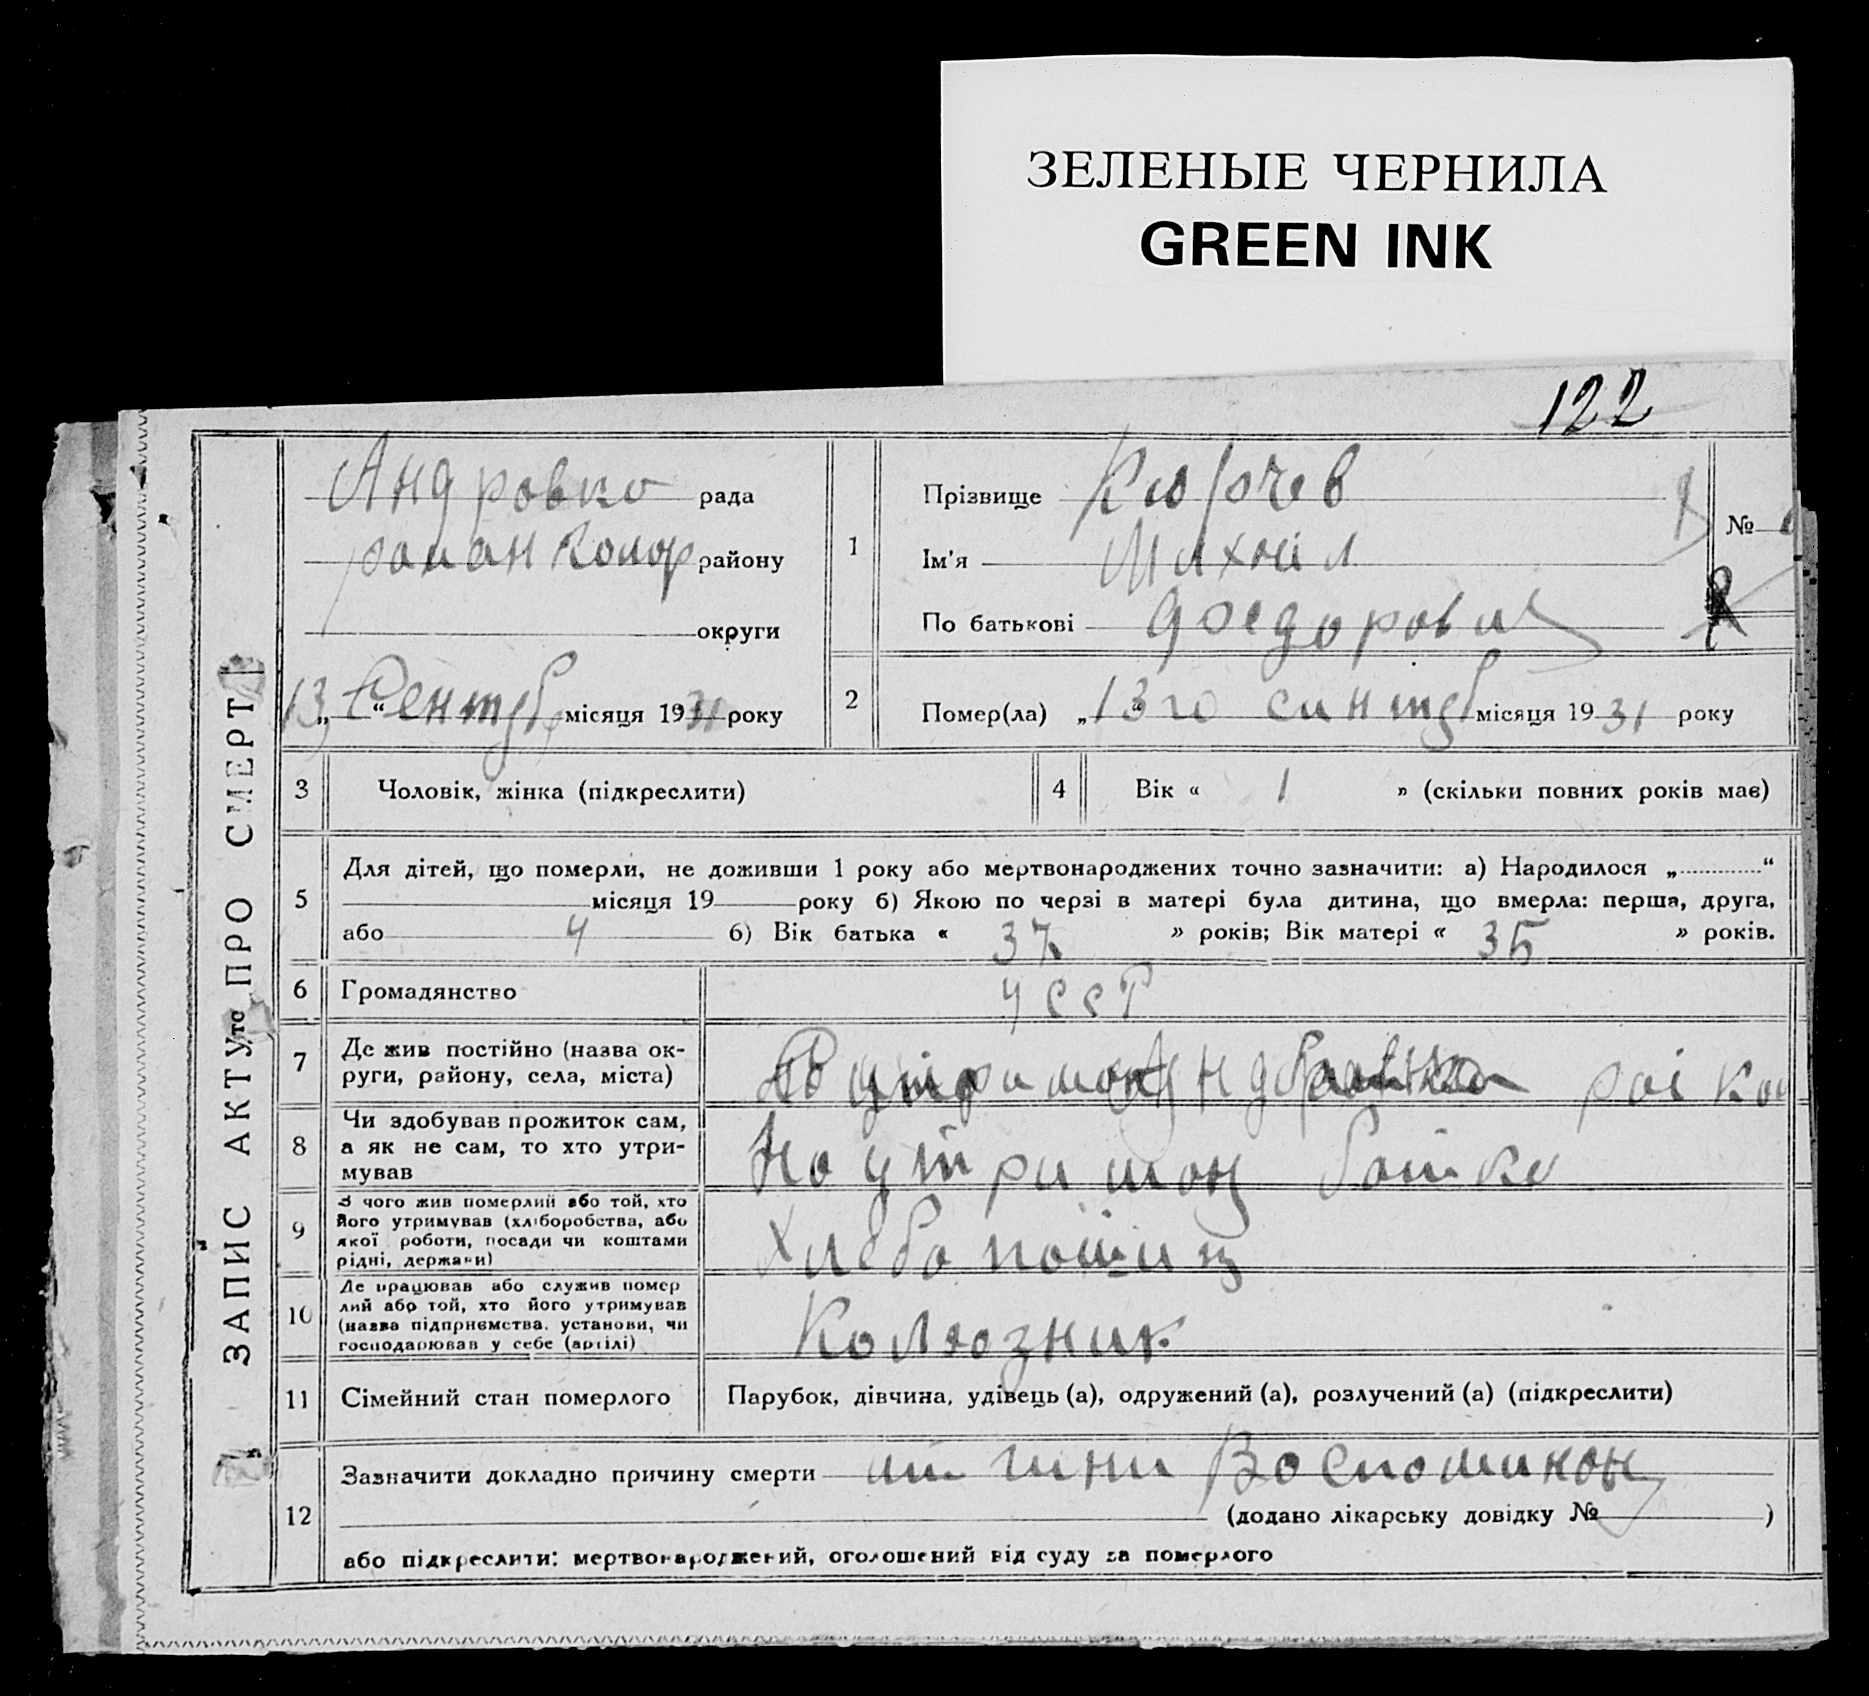 ЗЕЛЕНЫЕ ЧЕРНИЛА
GREEN INK
122
ЗАПИС АКТУ ПРО СМЕРТ
Андровко рада
району
округи
13 „ “ Сентяб місяця 1931 року
1
Прізвище
Ім'я Михаіл
По батькові Фоедорович
№
2
Помер(ла) „13го“ синтяб місяця 1931 року
3 Чоловік, жінка (підкреслити)
4 Вік « 1 » (скільки повних років має)
5
Для дітей, що померли, не доживши 1 року або мертвонароджених точно зазначити: а) Народилося „ “
місяця 19 року б) Якою по черзі в матері була дитина, що вмерла: перша, друга,
або 4 б) Вік батька « 37 » років; Вік матері « 35 » років.
6 Громадянство УССР
7
Де жив постійно (назва ок-
руги, району, села, міста)
8
Чи здобував прожиток сам,
а як не сам, то хто утри-
мував
На утриман батка
9
З чого жив померлий або той, хто
його утримував (хліборобства, або
якої роботи, посади чи коштами
рідні, держави)
10
Де працював або служив помер
лий або той, хто його утримував
(назва підприємства, установи, чи
господарював у себе (артілі)
Колхозник
11 Сімейний стан померлого
Парубок, дівчина, удівець (а), одружений (а), розлучений (а) (підкреслити)
12
Зазначити докладно причину смерти
(додано лікарську довідку № )
або підкреслити: мертвонароджений, оголошений від суду за померлого